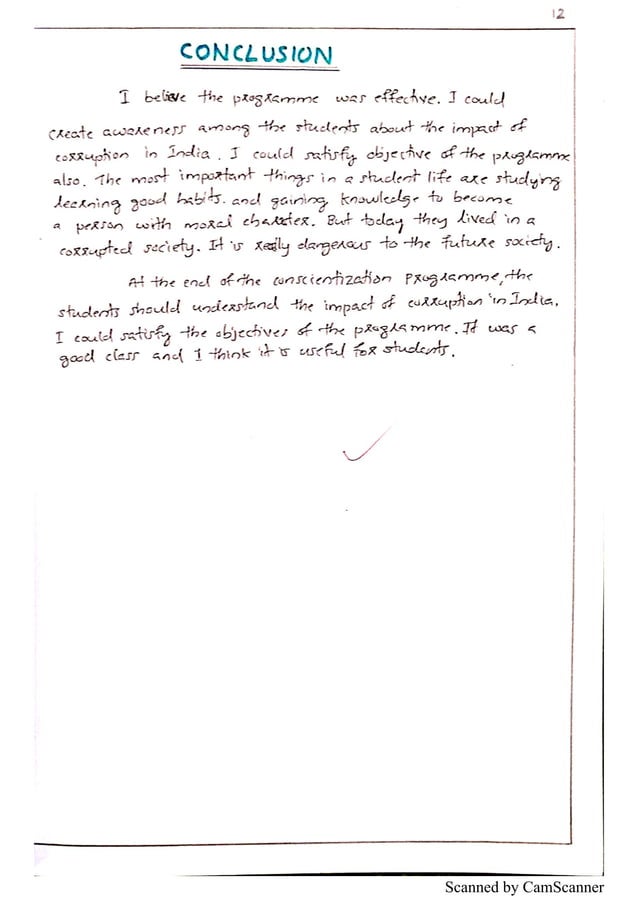 12
CONCLUSION
I believe the programme was effective. I could
create awareness among the students about the impact of
corruption in India. I could satisfy objective of the programme
also. The most important things in a student life are studying
learning good habits. and gaining knowledge to become
a person with moral charater. But today they lived in a
corrupted society. It is really dangerous to the future society.
At the end of the conscientization programme, the
students should understand the impact of curruption in India.
I could satisfy the objectives of the programme. It was a
good class and I think it is useful for students.
Scanned by CamScanner